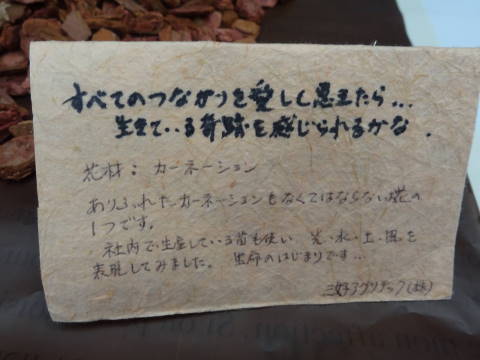 すべてのつながりを愛しく思えたら...
生きている奇跡を感じられるかな.
花材: カーネーション
ありふれたカーネーションもなくてはならない花の
1つです。
社内で生産している苗も使い 光・水・土・風を
表現してみました。 生命のはじまりです...
三好アグリテック(株)